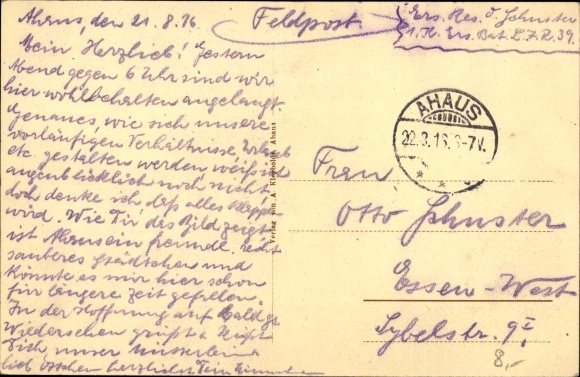 Ahaus, den 21.8.16
Mein Herzlieb! Gestern
Abend gegen 6 Uhr sind wir
hier wohlbehalten angelangt.
Genaues, wie sich unsere
vorläufigen Verhältnisse, Urlaub
etc. gestalten werden, weiß ich
augenblicklich noch nicht,
doch denke ich daß alles
wird. Wie Dir das Bild zeigt,
ist Ahaus ein recht
sauberes Städtchen und
könnte es mir hier schon
für längere Zeit gefallen.
In der Hoffnung auf bald
Wiedersehen grüßt u. küßt
Dich, unser
lieb herzlichst Dein
Verlag von A. Ahaus
Feldpost.
Ers. Res. O. Schuster
1. K. Ers. Bat. L.I.R. 39.
AHAUS
22.8.16. 6-7V.
Frau
Otto Schuster
Essen-West
Sybelstr. 9 I.
8,-